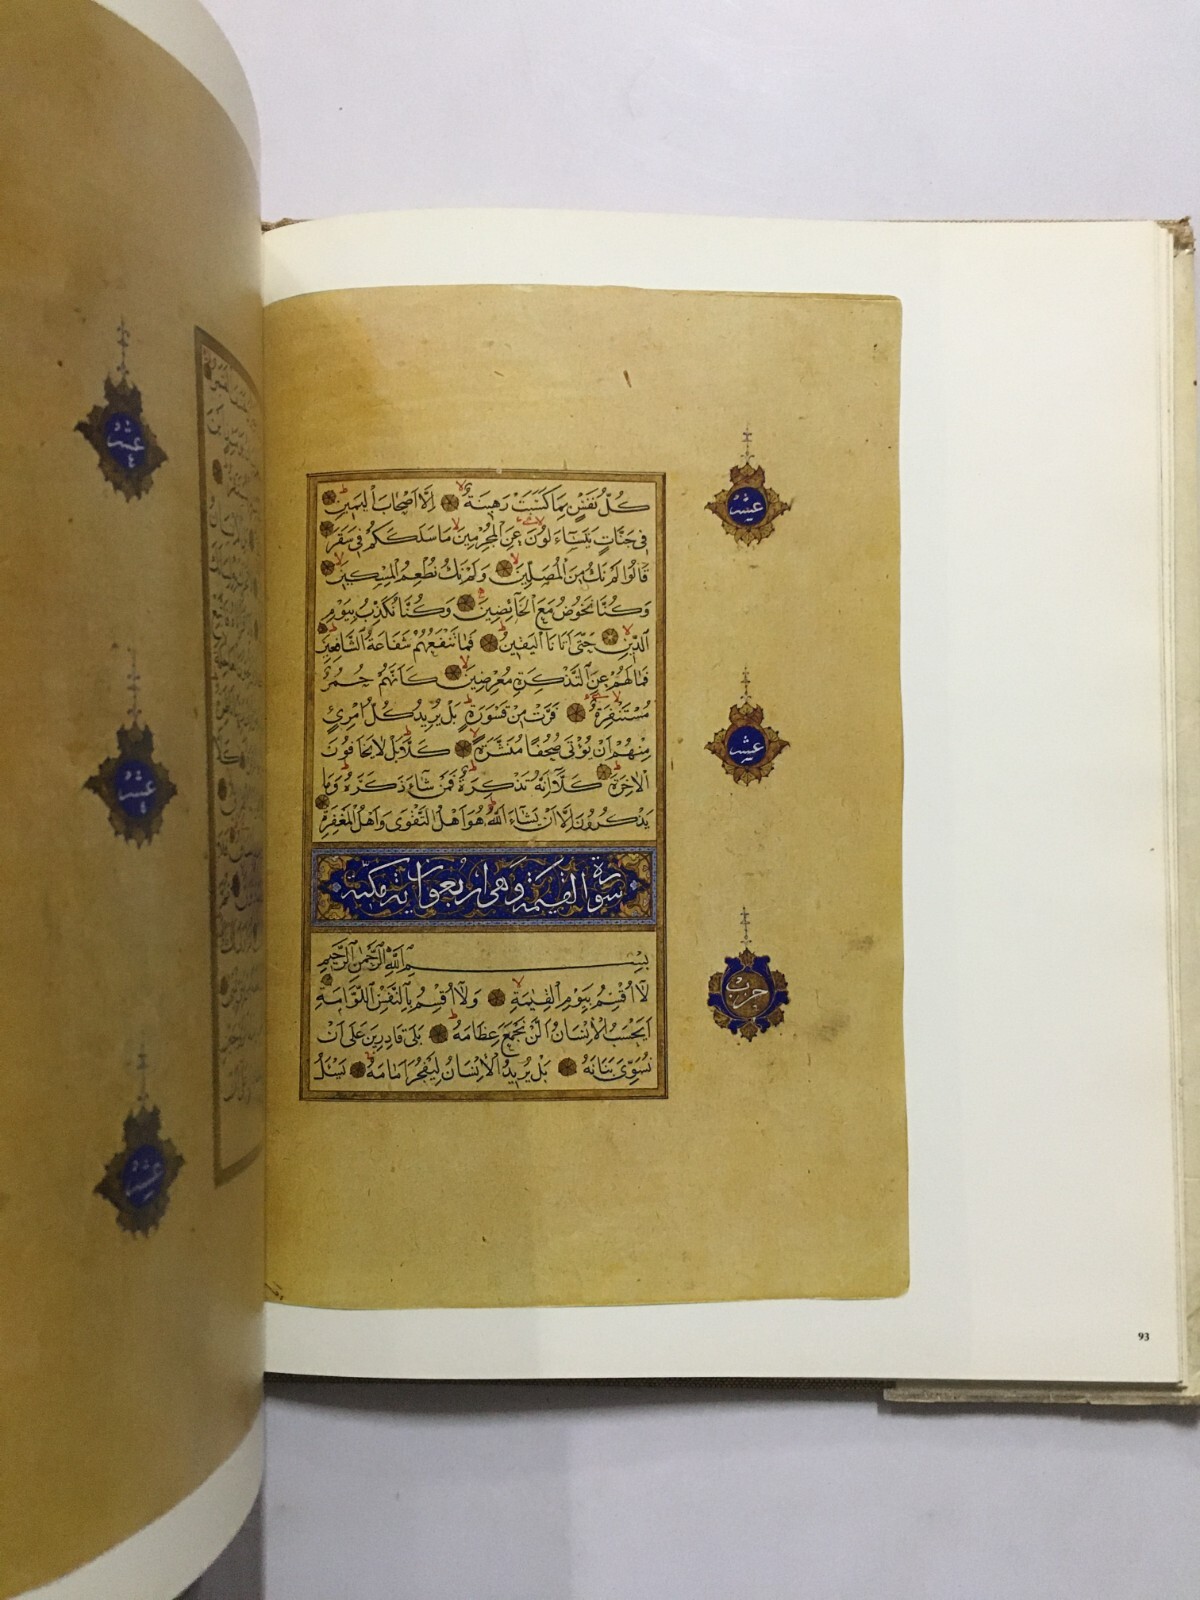 كُلُّ نَفْسٍ بِمَا كَسَبَتْ رَهِينَةٌ إِلَّا أَصْحَابَ الْيَمِينِ
فِي جَنَّاتٍ يَتَسَاءَلُونَ عَنِ الْمُجْرِمِينَ مَا سَلَكَكُمْ فِي سَقَرَ
قَالُوا لَمْ نَكُ مِنَ الْمُصَلِّينَ وَلَمْ نَكُ نُطْعِمُ الْمِسْكِينَ
وَكُنَّا نَخُوضُ مَعَ الْخَائِضِينَ وَكُنَّا نُكَذِّبُ بِيَوْمِ
الدِّينِ حَتَّى أَتَانَا الْيَقِينُ فَمَا تَنْفَعُهُمْ شَفَاعَةُ الشَّافِعِينَ
فَمَا لَهُمْ عَنِ التَّذْكِرَةِ مُعْرِضِينَ كَأَنَّهُمْ حُمُرٌ
مُسْتَنْفِرَةٌ فَرَّتْ مِنْ قَسْوَرَةٍ بَلْ يُرِيدُ كُلُّ امْرِئٍ
مِنْهُمْ أَنْ يُؤْتَى صُحُفًا مُنَشَّرَةً كَلَّا بَلْ لَا يَخَافُونَ
الْآخِرَةَ كَلَّا إِنَّهُ تَذْكِرَةٌ فَمَنْ شَاءَ ذَكَرَهُ وَمَا
يَذْكُرُونَ إِلَّا أَنْ يَشَاءَ اللَّهُ هُوَ أَهْلُ التَّقْوَى وَأَهْلُ الْمَغْفِرَةِ
سورة القيمة وهي اربعون اية مكية
بِسْمِ اللَّهِ الرَّحْمَنِ الرَّحِيمِ
لَا أُقْسِمُ بِيَوْمِ الْقِيمَةِ وَلَا أُقْسِمُ بِالنَّفْسِ اللَّوَّامَةِ
أَيَحْسَبُ الْإِنْسَانُ أَلَّنْ نَجْمَعَ عِظَامَهُ بَلَى قَادِرِينَ عَلَى أَنْ
نُسَوِّيَ بَنَانَهُ بَلْ يُرِيدُ الْإِنْسَانُ لِيَفْجُرَ أَمَامَهُ يَسْئَلُ
عشر
عشر
حزب
93
عشر
عشر
عشر